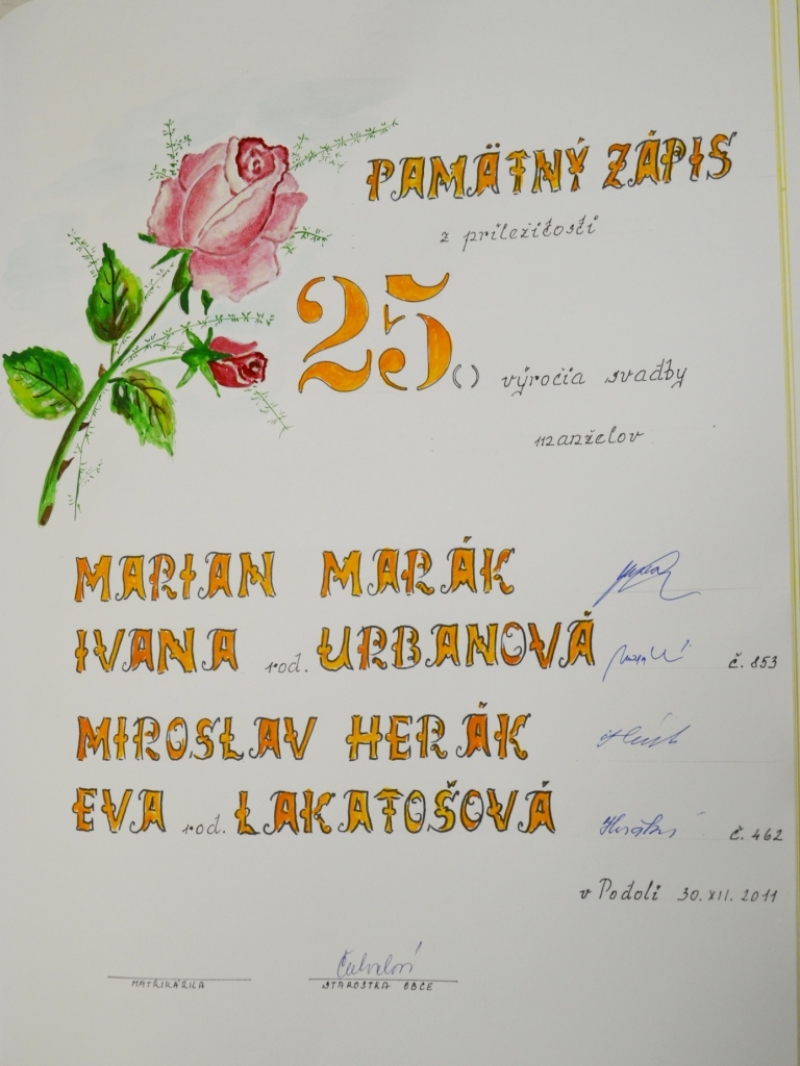 PAMÄTNÝ ZÁPIS
z príležitosti
25() výročia svadby
manželov
MARIAN MARÁK
IVANA rod. URBANOVÁ č. 853
MIROSLAV HERÁK
EVA rod. LAKATOŠOVÁ č. 462
v Podolí 30. XII. 2011
MATRIKÁRKA STAROSTKA OBCE